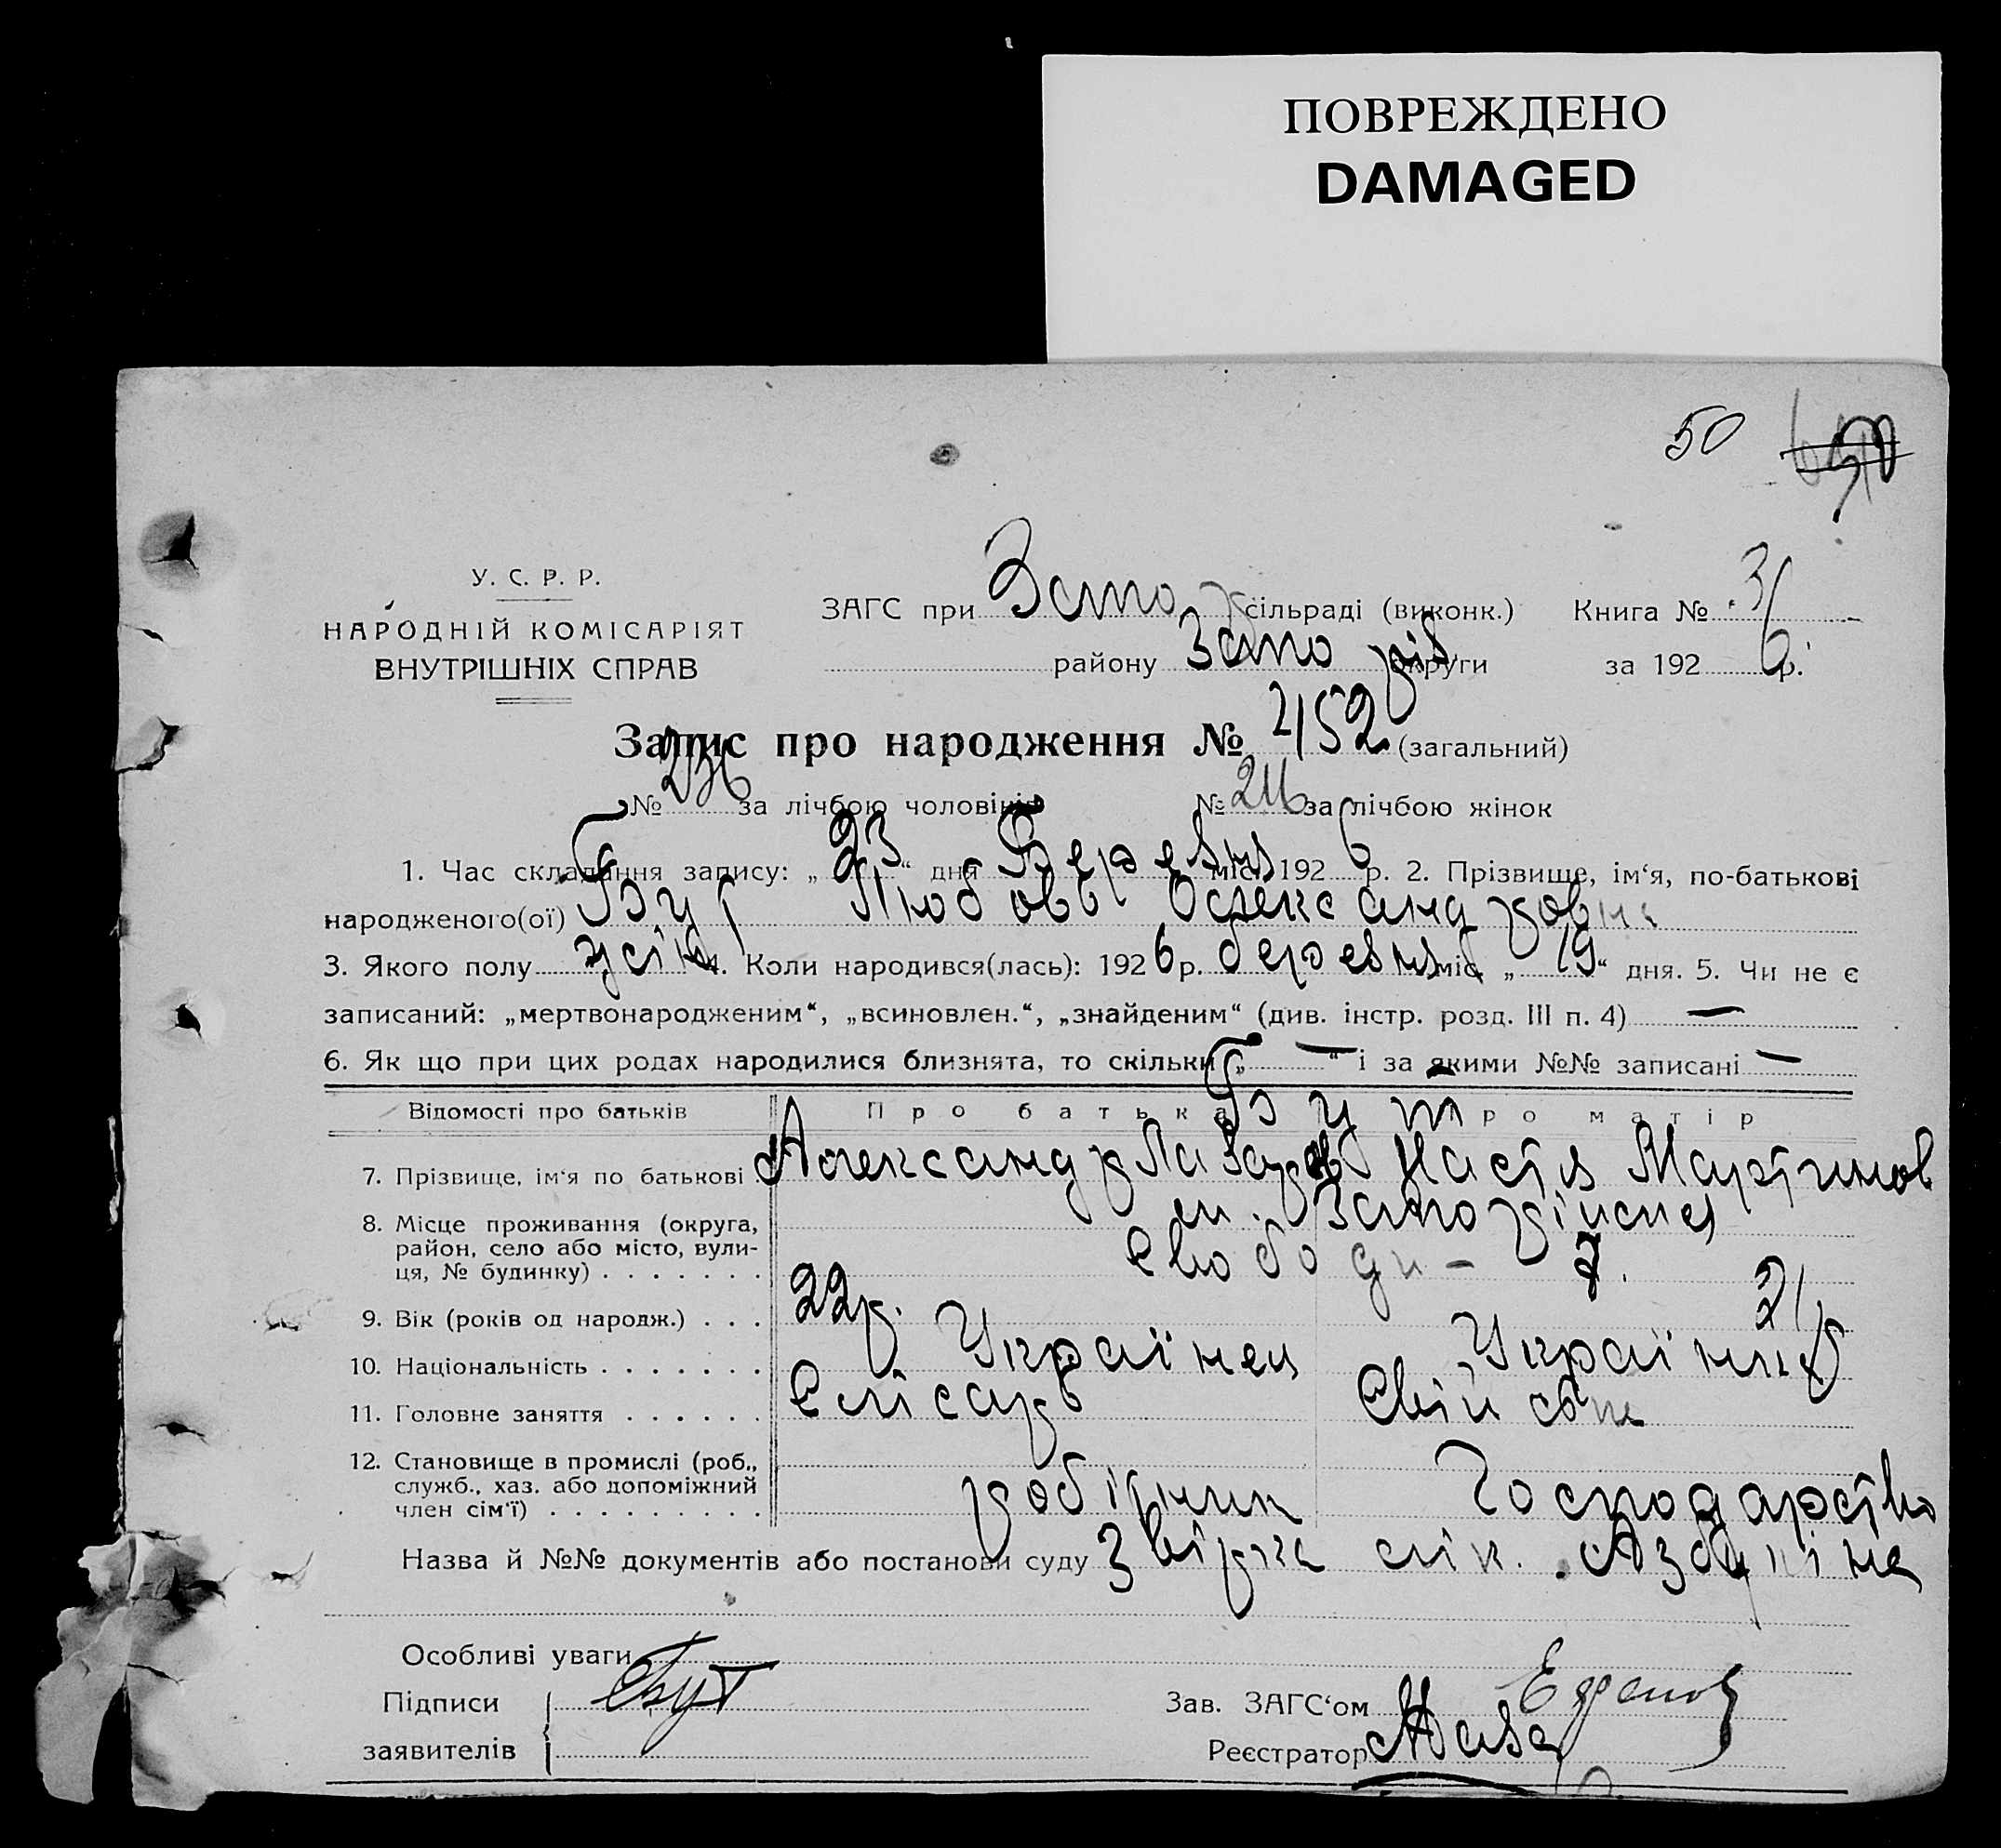 ПОВРЕЖДЕНО
DAMAGED
50
У. С. Р. Р.
НАРОДНІЙ КОМІСАРІЯТ
ВНУТРІШНІХ СПРАВ
ЗАГС при Запо сільраді (виконк.) Книга № 3
району Запоріз округи за 1926 р.
Запис про народження № 452 (загальний)
№ 236 за лічбою чоловіків № 216 за лічбою жінок
1. Час складання запису: „23“ дня Березня міс. 1926 р. 2. Прізвище, ім‘я, по-батькові
народженого(ої) Бут Любовь Олександровна
3. Якого полу жін 4. Коли народився(лась): 1926 р. березня міс. „19“ дня. 5. Чи не є
записаний: „мертвонародженим“, „всиновлен.“, „знайденим“ (див. інстр. розд. III п. 4) —
6. Як що при цих родах народилися близнята, то скільки „—“ і за якими №№ записані —
Відомості про батьків Про батька Про матір
Бут
7. Прізвище, ім‘я по батькові Александр Лазаров Настя Мартинов
8. Місце проживання (округа, район, село або місто, вулиця, № будинку) . . . . . . . м. Запоріжжя
Свободи - 7.
9. Вік (років од народж.) . . . 22 р. 21 р
10. Національність . . . . . . . Украінец Украінка
11. Головне заняття . . . . . . Слісарь Свій
12. Становище в промислі (роб., служб., хаз. або допоміжний член сім‘ї) . . . . . . . . . робітник Господарство
Назва й №№ документів або постанови суду Звірка
Особливі уваги
Підписи Бут Зав. ЗАГС‘ом
заявителів Реєстратор